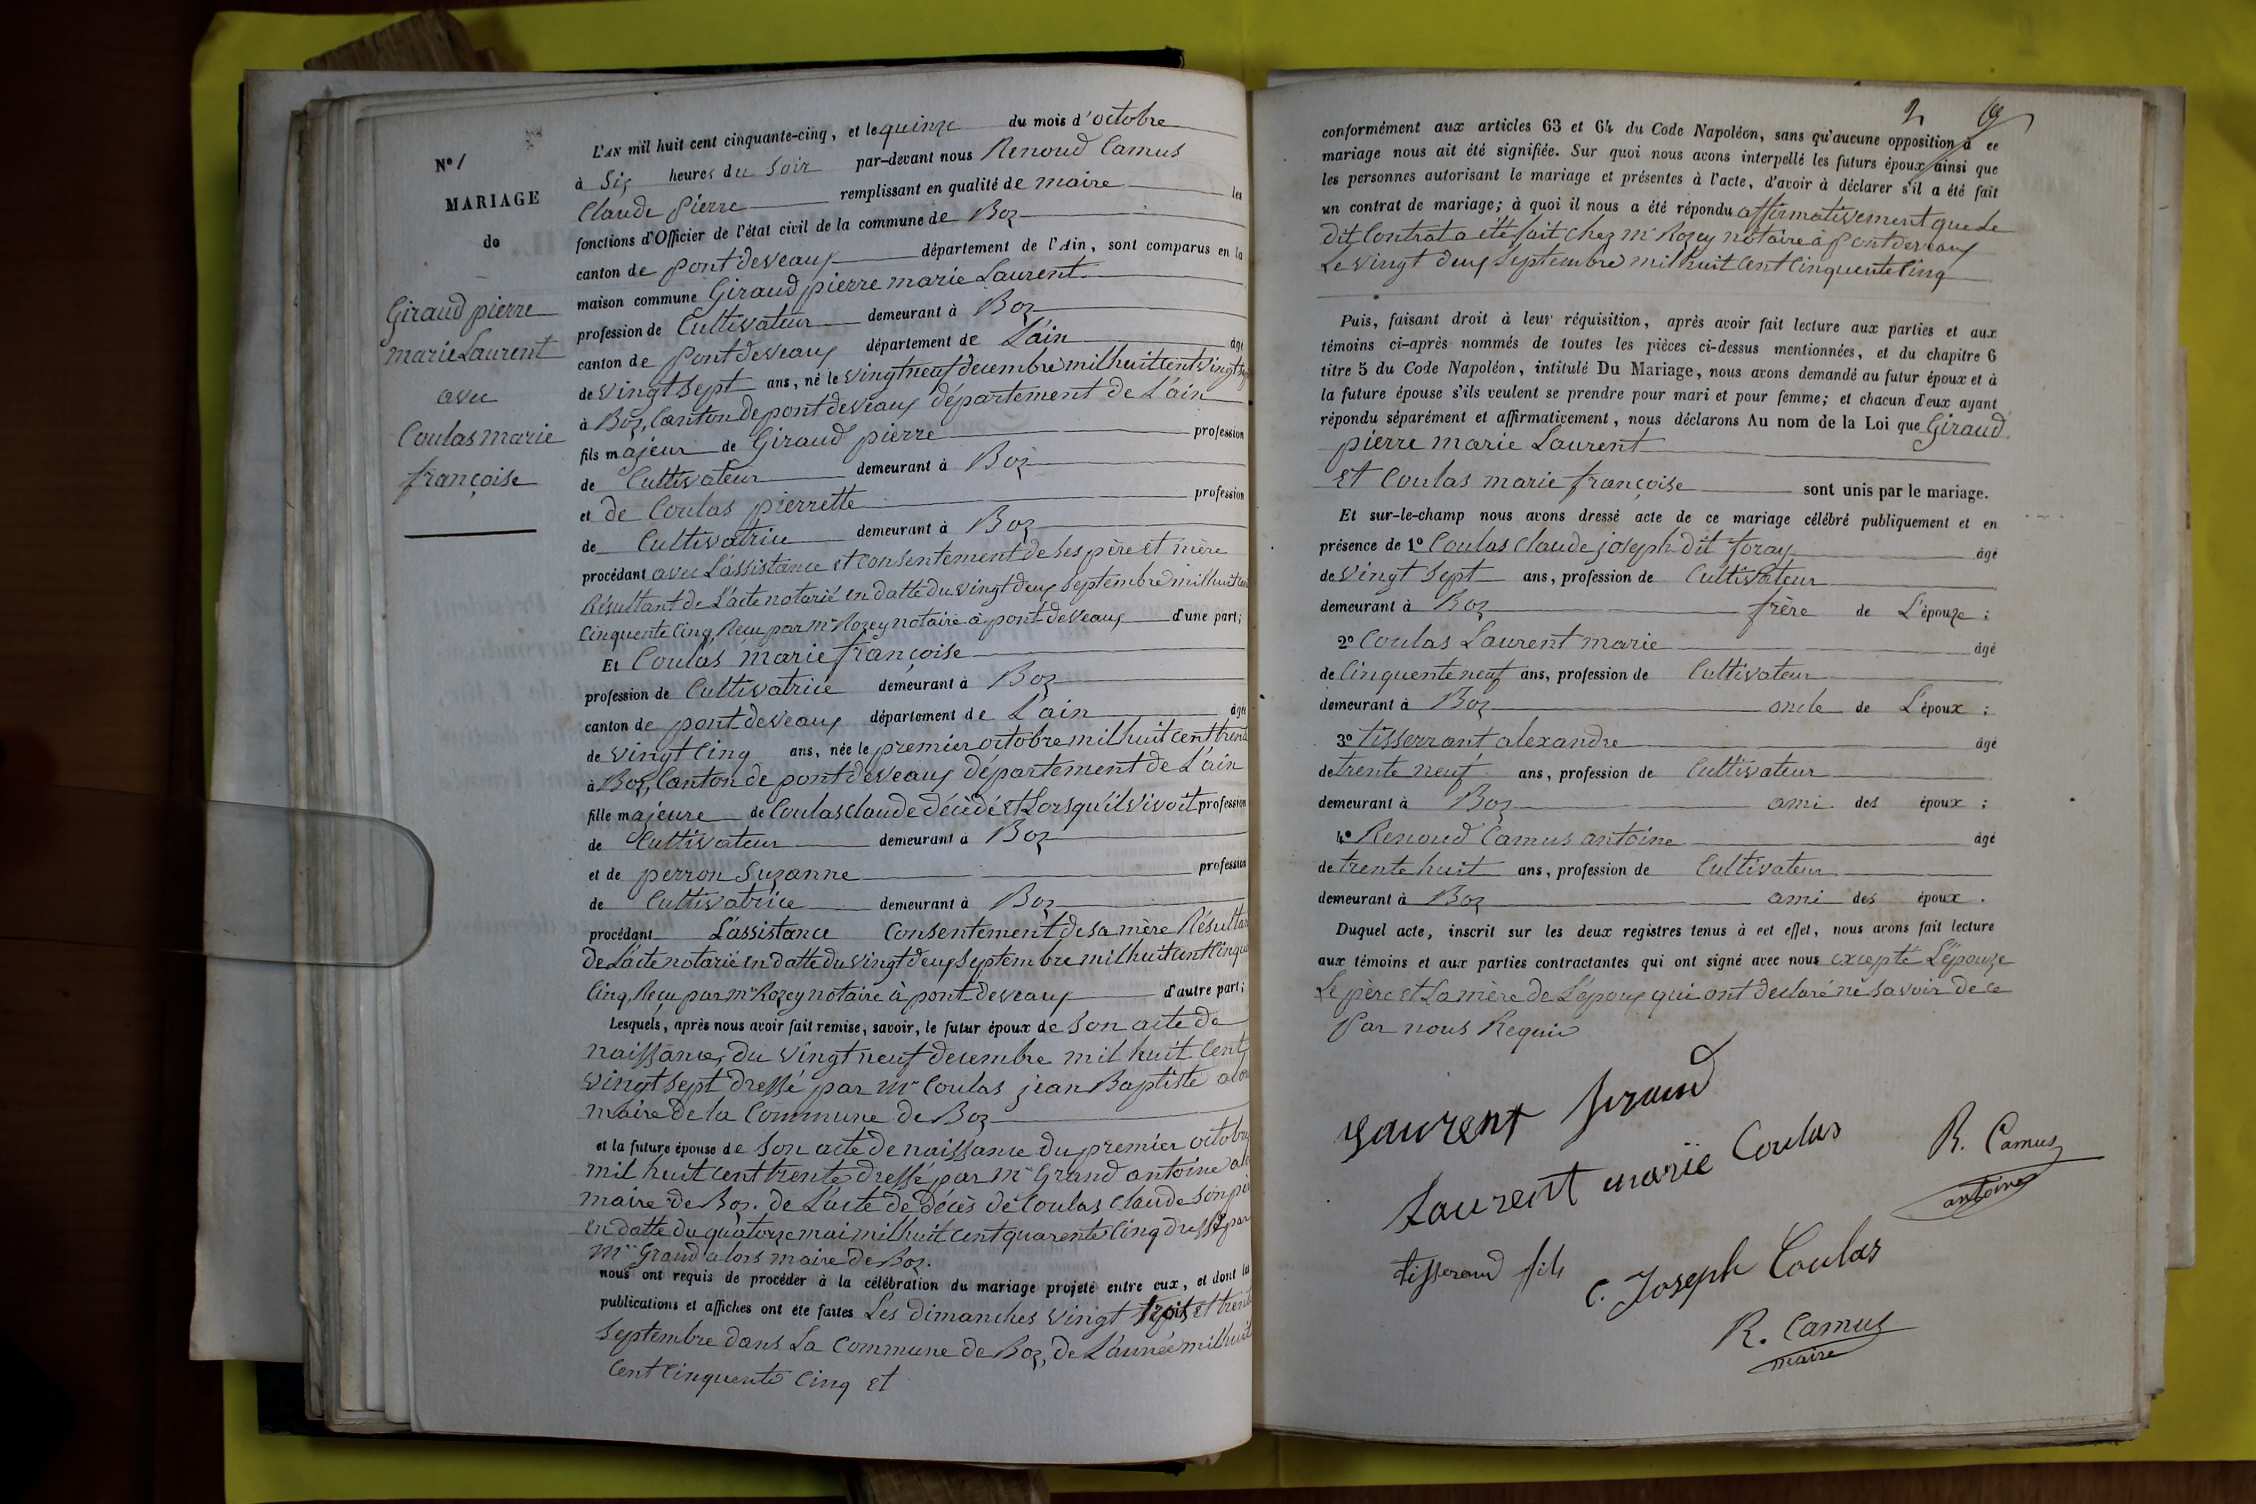 N° 1
MARIAGE
de
Giraud pierre
marie Laurent
avec
Coulas marie
françoise
L'AN mil huit cent cinquante-cinq, et le quinze du mois d'octobre
à Six heures du Soir par-devant nous Renoud Camus
Claude pierre remplissant en qualité de maire les
fonctions d'Officier de l'état civil de la commune de Boz
canton de pont deveaux département de l'Ain, sont comparus en la
maison commune Giraud pierre marie Laurent
profession de Cultivateur demeurant à Boz
canton de pont deveaux département de L'ain âgé
de vingt sept ans, né le vingt neuf decembre mil huit cent vingt sept
à Boz, Canton de pont deveaux département de L'ain
fils majeur de Giraud pierre profession
de Cultivateur demeurant à Boz
et de Coulas pierrette profession
de Cultivatrice demeurant à Boz
procédant avec L'assistance et consentement de ses père et mère
Résultant de L'acte notarié en datte du vingt deux septembre mil huit cent
Cinquente Cinq, Reçu par Mr Rozey notaire à pont deveaux d'une part;
Et Coulas marie françoise
profession de Cultivatrice demeurant à Boz
canton de pont deveaux département de L'ain âgée
de vingt Cinq ans, née le premier octobre mil huit cent trente
à Boz, Canton de pont deveaux département de L'ain
fille majeure de Coulas Claude décédé et Lorsqu'il vivoit profession
de Cultivateur demeurant à Boz
et de perron Suzanne profession
de Cultivatrice demeurant à Boz
procédant L'assistance Consentement de sa mère Résultan
de L'acte notarié en datte du vingt deux septembre mil huit cent Cinque
Cinq, Reçu par Mr Rozey notaire à pont deveaux d'autre part;
Lesquels, après nous avoir fait remise, savoir, le futur époux de Son acte de
naissance, du vingt neuf decembre mil huit Cent
vingt sept dressé par Mr Coulas jean Baptiste alor
maire de la Commune de Boz
et la future épouse de Son acte de naissance du premier octobre
mil huit cent trente dressé par Mr Grand antoine alo
maire de Boz. de L'acte de décès de Coulas Claude Son pè
en datte du quatorze mai mil huit cent quarente Cinq dressé par
Mr Grand alors maire de Boz.
nous ont requis de procéder à la célébration du mariage projeté entre eux, et dont les
publications et affiches ont été faites Les dimanches vingt trois et trente
Septembre dans La Commune de Boz, de L'année mil huit
Cent Cinquente Cinq et
2
conformément aux articles 63 et 64 du Code Napoléon, sans qu'aucune opposition à ce
mariage nous ait été signifiée. Sur quoi nous avons interpellé les futurs époux ainsi que
les personnes autorisant le mariage et présentes à l'acte, d'avoir à déclarer s'il a été fait
un contrat de mariage; à quoi il nous a été répondu affirmativement que Le
dit Contrat a été fait chez Mr Rozey notaire à pont deveaux
Le vingt deux septembre mil huit Cent Cinquente Cinq
Puis, faisant droit à leur réquisition, après avoir fait lecture aux parties et aux
témoins ci-après nommés de toutes les pièces ci-dessus mentionnées, et du chapitre 6
titre 5 du Code Napoléon, intitulé Du Mariage, nous avons demandé au futur époux et à
la future épouse s'ils veulent se prendre pour mari et pour femme; et chacun d'eux ayant
répondu séparément et affirmativement, nous déclarons Au nom de la Loi que Giraud
pierre marie Laurent
et Coulas marie françoise sont unis par le mariage.
Et sur-le-champ nous avons dressé acte de ce mariage célébré publiquement et en
présence de 1° Coulas Claude joseph dit foray âgé
de vingt sept ans, profession de Cultivateur
demeurant à Boz frère de L'épouze;
2° Coulas Laurent marie âgé
de Cinquente neuf ans, profession de Cultivateur
demeurant à Boz oncle de L'époux;
3° tisserrant alexandre âgé
de trente neuf ans, profession de Cultivateur
demeurant à Boz ami des époux;
4° Renoud Camus antoine âgé
de trente huit ans, profession de Cultivateur
demeurant à Boz ami des époux.
Duquel acte, inscrit sur les deux registres tenus à cet effet, nous avons fait lecture
aux témoins et aux parties contractantes qui ont signé avec nous excepté L'épouze
Le père et La mère de L'époux qui ont declaré ne Savoir de ce
par nous Requis
Laurent Giraud
Laurent marie Coulas
R. Camus
antoine
tisserand fils
C. Joseph Coulas
R. Camus
maire